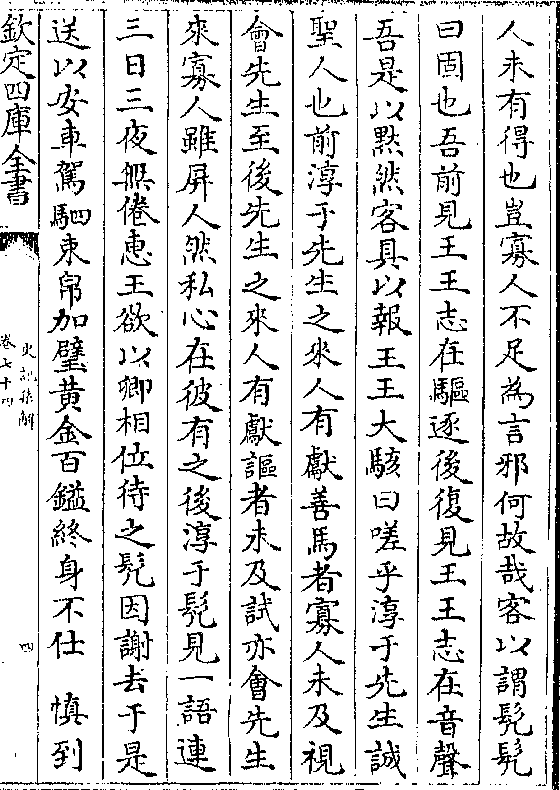 人未有得也豈寡人不足為言邪何故哉客以謂髠髠
曰固也吾前見王王志在驅逐後復見王王志在音聲
吾是以黙然客具以報王王大駭曰嗟乎淳于先生誠
聖人也前淳于先生之來人有獻善馬者寡人未及視
會先生至後先生之來人有獻謳者未及試亦會先生
來寡人雖屏人然私心在彼有之後淳于髠見一語連
三日三夜無倦惠王欲以卿相位待之髠因謝去于是
送以安車駕駟束帛加璧黄金百鎰終身不仕　慎到
欽定四庫全書
史記集解
卷七十四
四